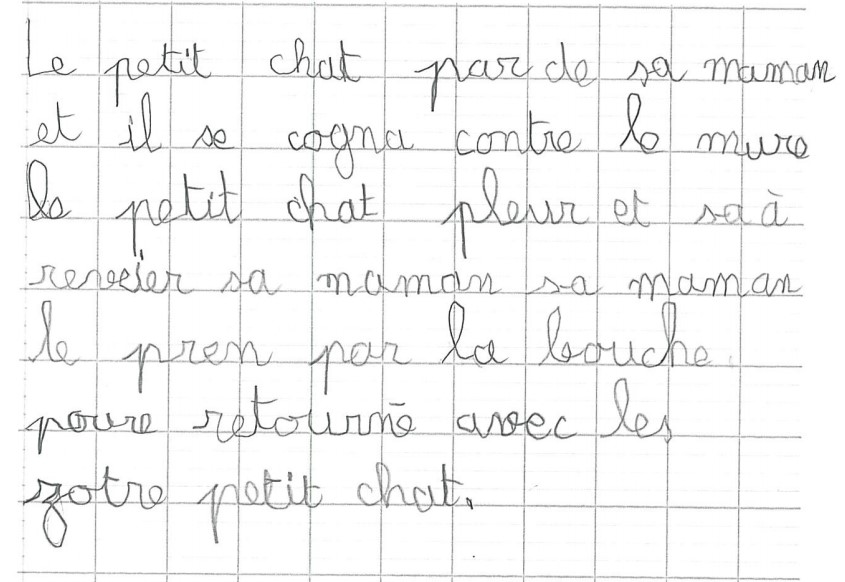 Le petit chat par de sa maman
et il se cogna contre le mure
le petit chat pleur et sa à
reveier sa maman sa maman
le pren par la bouche
poure retourné avec les
zotre petit chat.